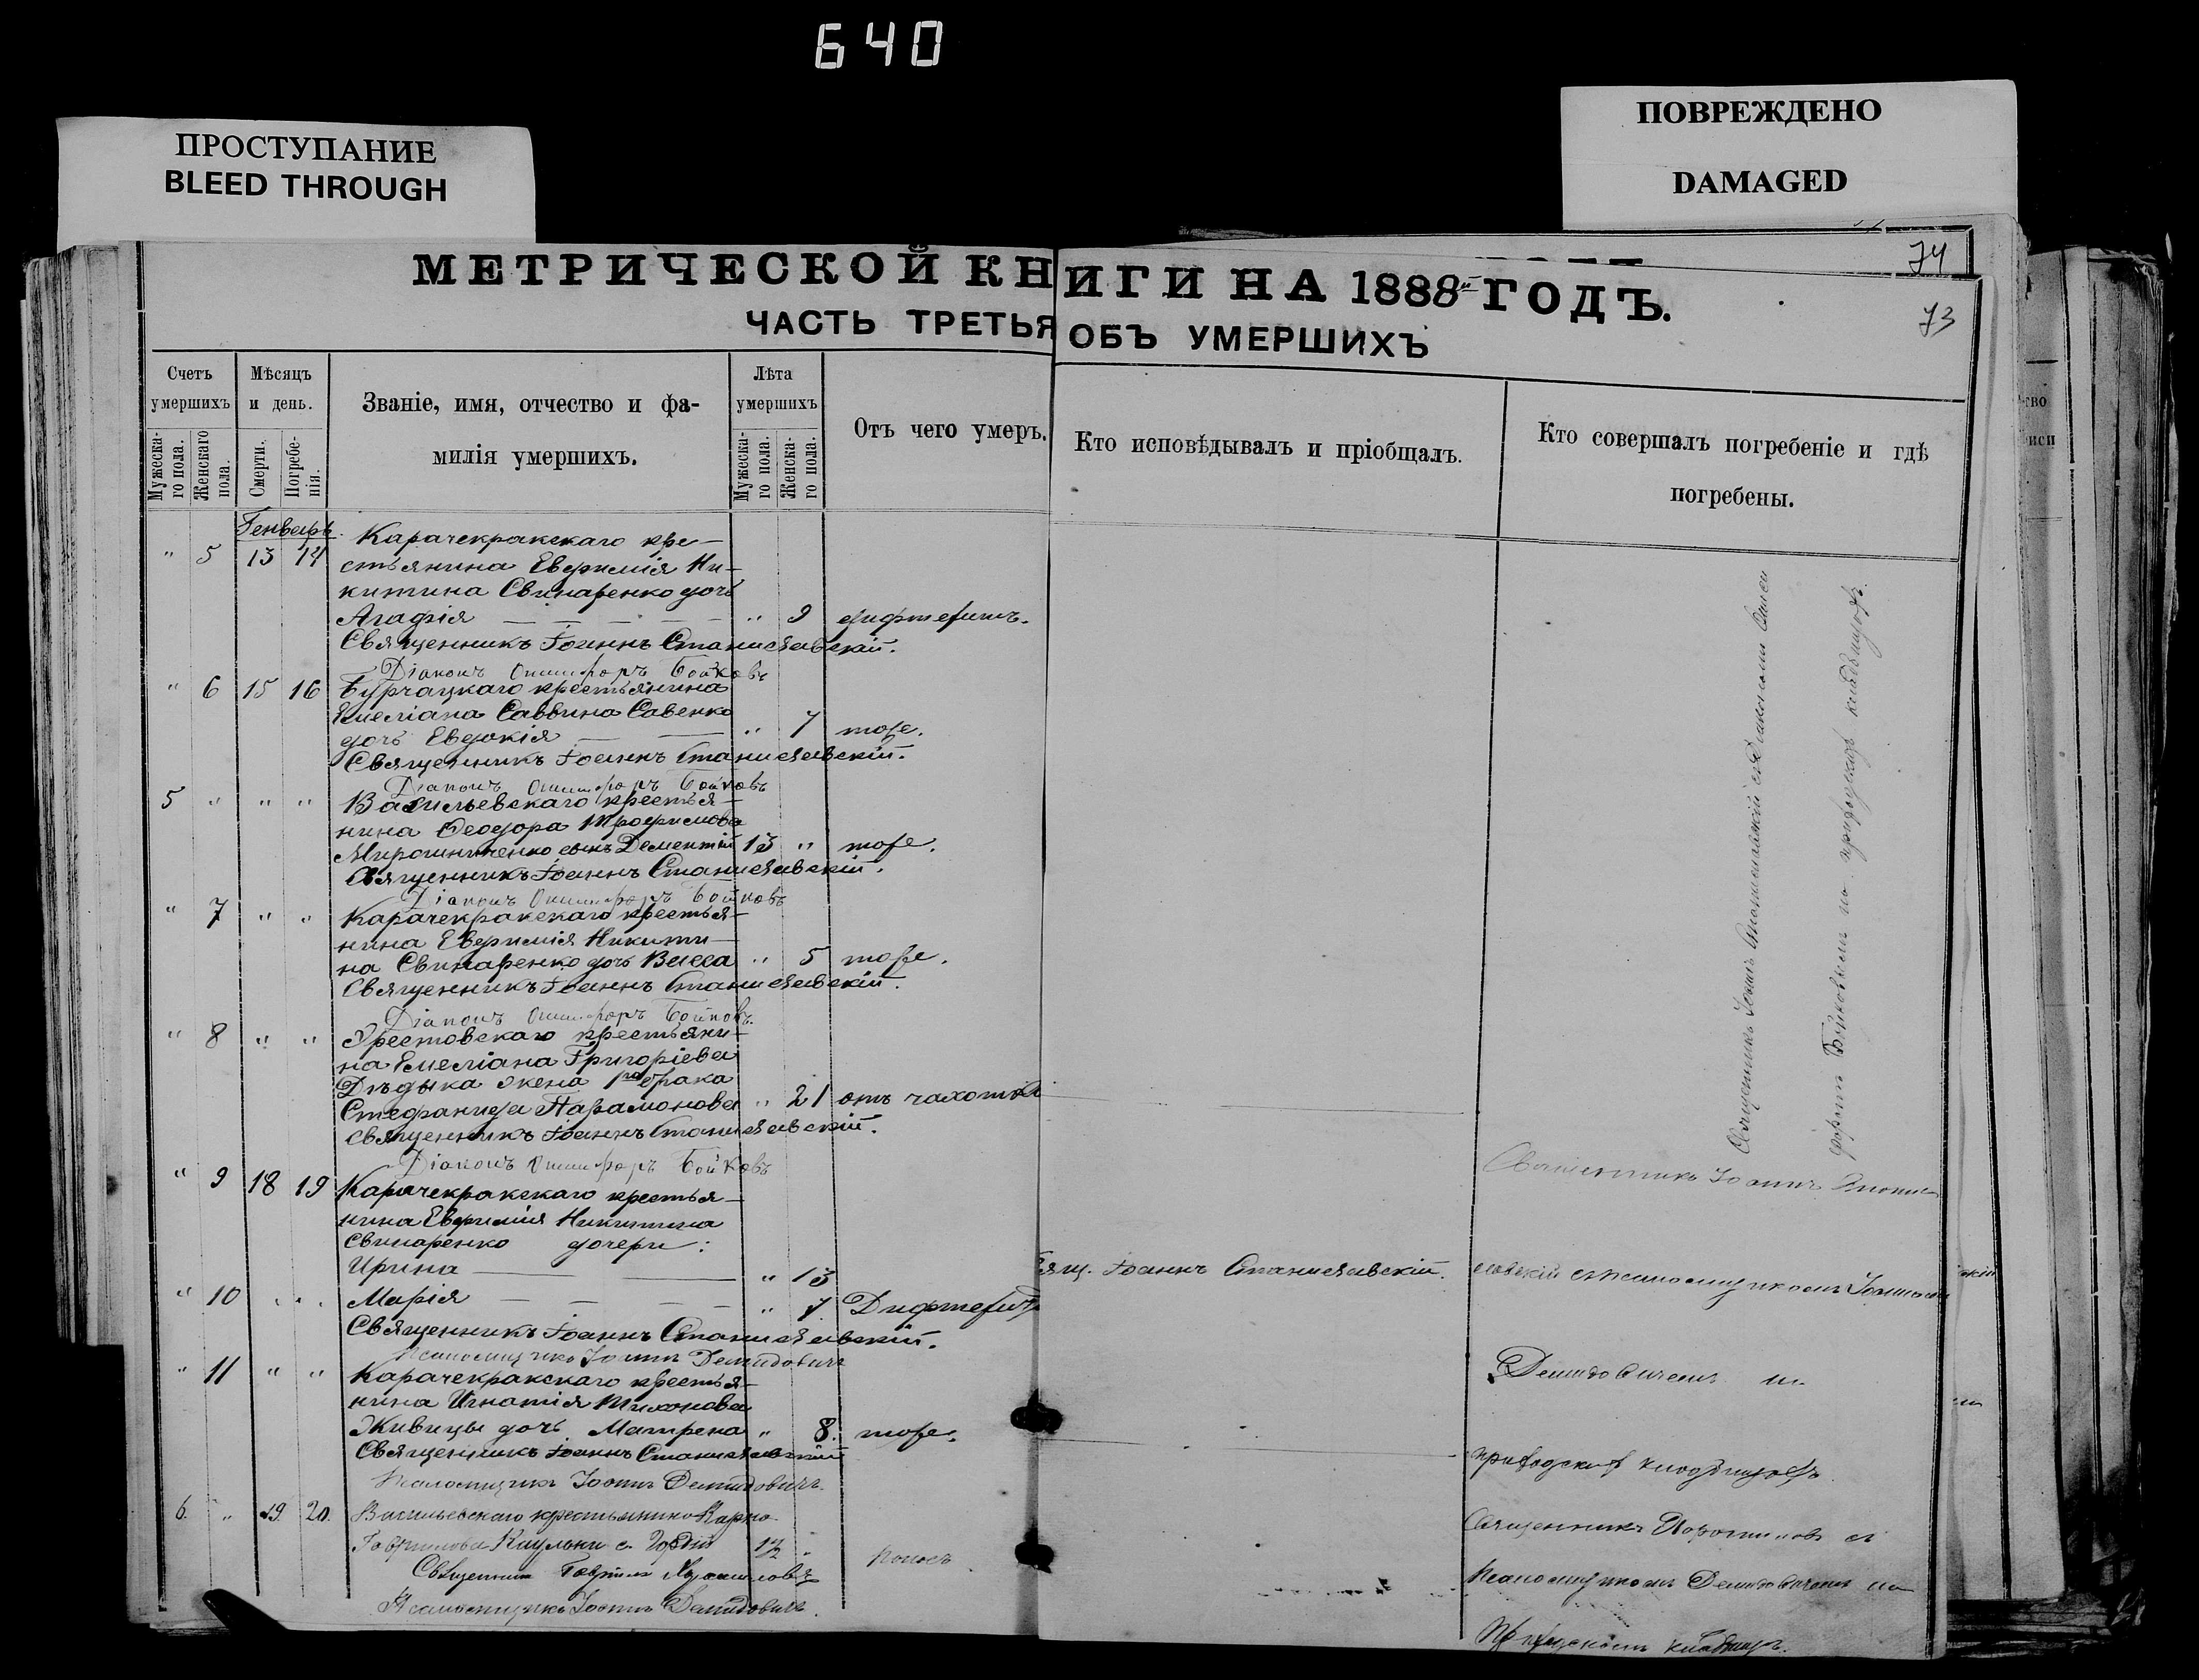 640
ПРОСТУПАНИЕ
BLEED THROUGH
ПОВРЕЖДЕНО
DAMAGED
74
73
МЕТРИЧЕСКОЙ КНИГИ НА 1888й ГОДЪ.
ЧАСТЬ ТРЕТЬЯ ОБЪ УМЕРШИХЪ
Счетъ умершихъ
Мужескаго пола.
Женскаго пола.
Мѣсяцъ и день.
Смерти.
Погребенія.
Званіе, имя, отчество и фамилія умершихъ.
Лѣта умершихъ
Мужескаго пола.
Женскаго пола.
Отъ чего умеръ.
Кто исповѣдывалъ и пріобщалъ.
Кто совершалъ погребеніе и гдѣ
погребены.
Генварь
" 5 13 14 Карачекракскаго кре-
стьянина Евфимія Ни-
китина Свинаренко дочь
Агафія " 9 дифтеритъ.
Священникъ Іоаннъ Станиславскій.
Діаконъ Онисифоръ Бойковъ
" 6 15 16 Бурчацкаго крестьянина
Емеліана Саввина Савенко
дочь Евдокія " 7 тоже.
Священникъ Іоаннъ Станиславскій.
Діаконъ Онисифоръ Бойковъ
5 " " " Васильевскаго крестья-
нина Ѳеодора Трофимова
Мирошниченко сынъ Дементій 13 " тоже.
Священникъ Іоаннъ Станиславскій.
Діаконъ Онисифоръ Бойковъ
" 7 " " Карачекракскаго крестья-
нина Евфимія Никити-
на Свинаренко дочь Васса " 5 тоже.
Священникъ Іоаннъ Станиславскій.
Діаконъ Онисифоръ Бойковъ.
" 8 " " Эрестовскаго крестьяни-
на Емеліана Григоріева
Дѣдыка жена 1го брака
Стефанида Парамонова " 21 отъ чахотки
Священникъ Іоаннъ Станиславскій.
Діаконъ Онисифоръ Бойковъ
" 9 18 19 Карачекракскаго крестья-
нина Евфимія Никитина
Свинаренко дочери:
Ирина " 13
" 10 " " Марія " 7 Дифтерит
Священникъ Іоаннъ Станиславскій.
Псаломщикъ Іоаннъ Демидовичъ
" 11 " " Карачекракскаго крестья-
нина Игнатія Тихонова
Живицы дочь Матрена " 8. тоже.
Священникъ Іоаннъ Станиславскій
Псаломщикъ Іоаннъ Демидовичъ.
6. " 19. 20. Васильевскаго крестьянина Карпа
Гавриилова с. Гордій 1 1/2 " Поносъ
Священникъ Гавріилъ
Псаломщикъ Іоаннъ Демидовичъ.
Священникъ Іоаннъ Станиславскій съ Діакономъ Ониси
форомъ Бойковымъ на приходскомъ кладбищѣ.
Свящ. Іоаннъ Станиславскій.
Священникъ Іоаннъ Станис
лавскій съ псаломщикомъ Іоанномъ
Демидовичемъ на
приходскомъ кладбищѣ.
Священникъ съ
Псаломщикомъ Демидовичемъ на
Приходскомъ кладбищѣ.